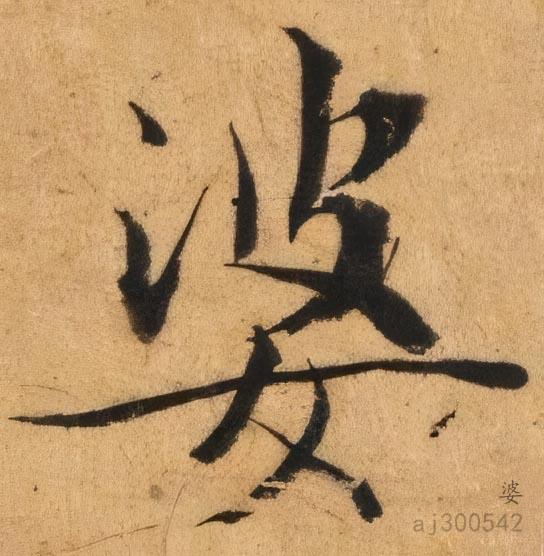 婆
婆
aj300542